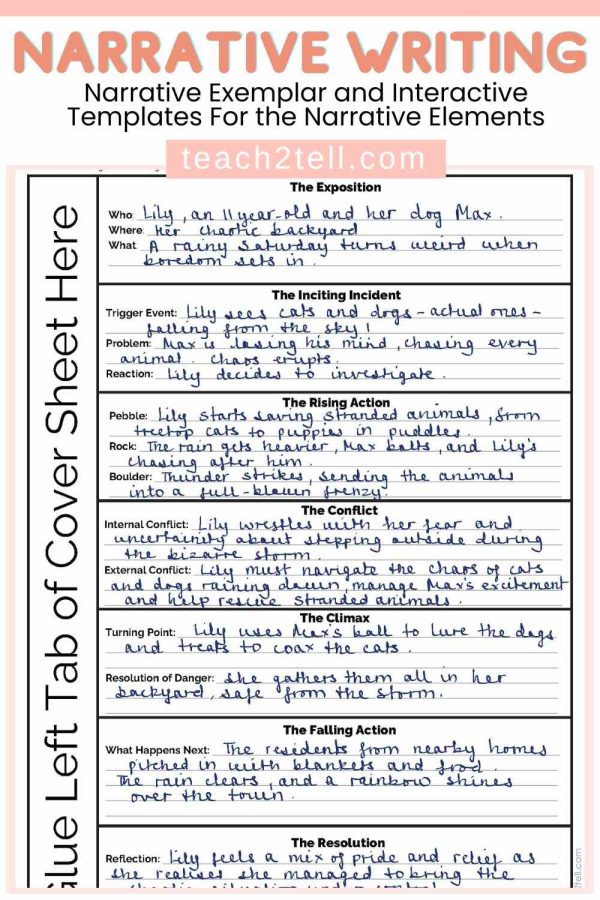 NARRATIVE WRITING
Narrative Exemplar and Interactive
Templates For the Narrative Elements
teach2tell.com
Glue Left Tab of Cover Sheet Here
The Exposition
Who: Lily, an 11 year-old and her dog Max.
Where: her chaotic backyard
What: A rainy Saturday turns weird when
boredom sets in.
The Inciting Incident
Trigger Event: Lily sees cats and dogs - actual ones -
falling from the sky!
Problem: Max is losing his mind, chasing every
animal. Chaos erupts.
Reaction: Lily decides to investigate.
The Rising Action
Pebble: Lily starts saving stranded animals, from
treetop cats to puppies in puddles.
Rock: The rain gets heavier, Max bolts, and Lily's
chasing after him.
Boulder: Thunder strikes, sending the animals
into a full-blown frenzy!
The Conflict
Internal Conflict: Lily wrestles with her fear and
uncertainity about stepping outside during
the bizarre storm.
External Conflict: Lily must navigate the chaos of cats
and dogs raining down, manage Max's excitement
and help rescue stranded animals.
The Climax
Turning Point: Lily uses Max's ball to lure the dogs
and treats to coax the cats.
Resolution of Danger: She gathers them all in her
backyard, safe from the storm.
The Falling Action
What Happens Next: The residents from nearby homes
pitched in with blankets and food.
The rain clears, and a rainbow shines
over the town.
The Resolution
Reflection: Lily feels a mix of pride and relief as
she realises she managed to bring the
2tell.com